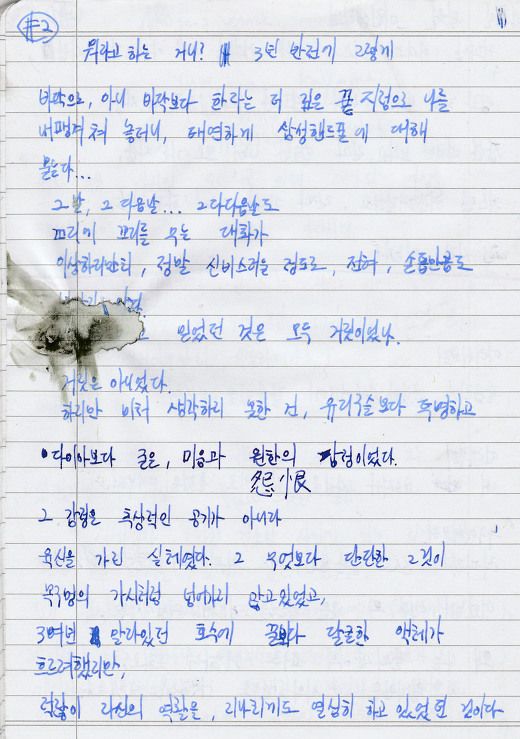 #2
뭐라고 하는 거니? 3년 만인가 그렇게
바닥으로, 아니 바닥보다 하라는 더 깊은 끝 지렁으로 나를
내팽겨쳐 놓더니, 태연하게 삼성핸드폰에 대해
묻는다...
그날, 그 다음날... 그 다다음날도
꼬리에 꼬리를 무는 대화가
이상하리만티, 정말 신비스러울 정도로, 전혀, 손톱만큼도
믿었던 것은 모두 거짓이었나.
거짓은 아니었다.
하지만 미처 생각하지 못한 건, 유리구슬보다 투명하고
•다이아보다 굳은, 미움과 원한의 감정이었다.
怨恨
그 감정은 추상적인 공기가 아니라
육신을 가진 실체였다. 그 무엇보다 단단한 그것이
목구멍의 가시처럼 넘어가지 않고 있었고,
30여년 말라있던 호수에 꿀보다 달콤한 액체가
흐르려했지만,
럭랑이 라신의 역할을, 지나치게도 열심히 하고 있었던 것이다